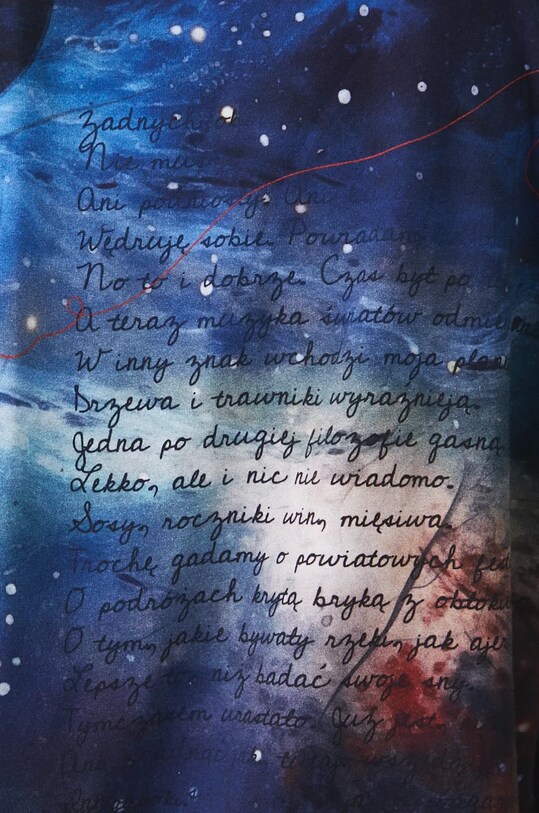 Żadnych
Nie mus
Ani
Wędruję sobie.
No to i dobrze. Czas był po
A teraz muzyka światów odmie
W inny znak wchodzi moja plane
Drzewa i trawniki wyraźnieją.
Jedna po drugiej filozofie gasną
Lekko, ale i nic nie wiadomo.
Sosy, roczniki win, mięsiwa.
Trochę gadamy o powiatowych fes
O podróżach krytą bryką z obłoku
O tym, jakie bywały rzeki, jak ajer
Lepsze to, niż badać swoje sny.
Tymczasem urastało. Już jest